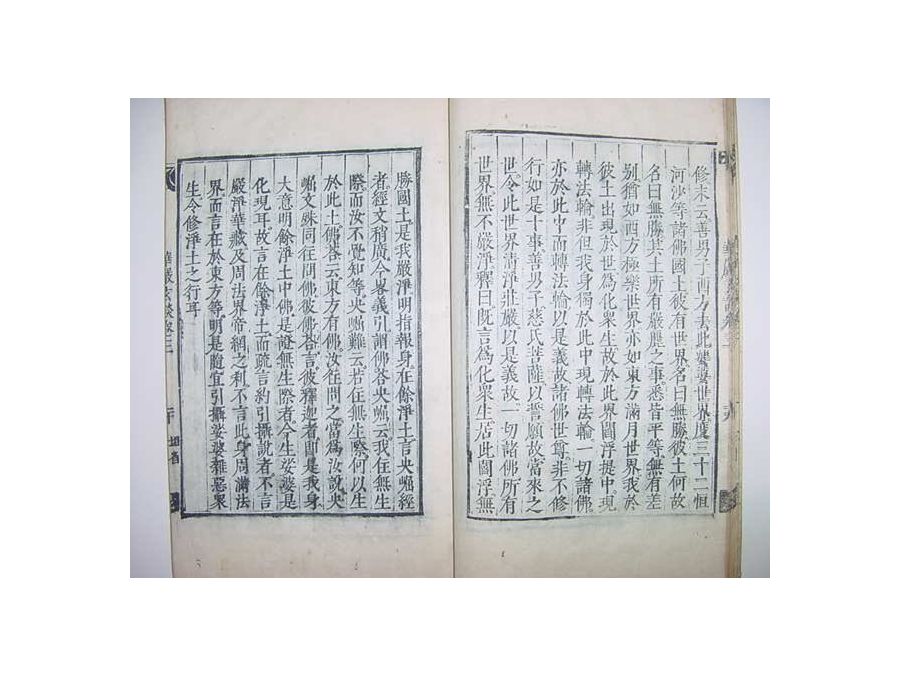 修未云善男子西方去此娑婆世界度三十二恒
河沙等諸佛國土彼有世界名曰無勝彼土何故
名曰無勝其土所有嚴麗之事悉皆平等無有差
别猶如西方極樂世界亦如東方滿月世界我於
彼土出現於世爲化衆生故於此界閻浮提中現
轉法輪非但我身獨於此中現轉法輪一切諸佛
亦於此中而轉法輪以是義故諸佛世尊非不修
行如是十事善男子慈氏菩薩以誓願故當來之
世令此世界清淨莊嚴以是義故一切諸佛所有
世界無不嚴淨釋曰既言爲化衆生居此閻浮無
勝國土是我嚴淨明指報身在餘淨土言央崛經
者經文稍廣今畧義引謂佛答央崛云我住無生
際而汝不覺知等央崛難云若住無生際何以生
於此土佛答云東方有佛汝往問之當爲汝說央
崛文殊同往問佛彼佛答言彼釋迦者即是我身
大意明餘淨土中佛是證無生際者今生娑婆是
化現耳故言在餘淨土而疏言約引攝說者不言
嚴淨華藏及周法界帝網之刹不言此身周滿法
界而言在於東方等明是隨宜引攝娑婆雜惡衆
生令修淨土之行耳
華嚴玄談卷三